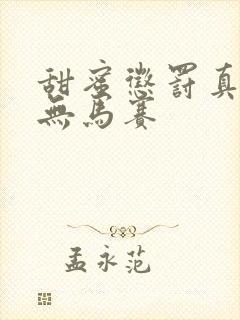 甜蜜懲罰真
無馬賽
孟永范